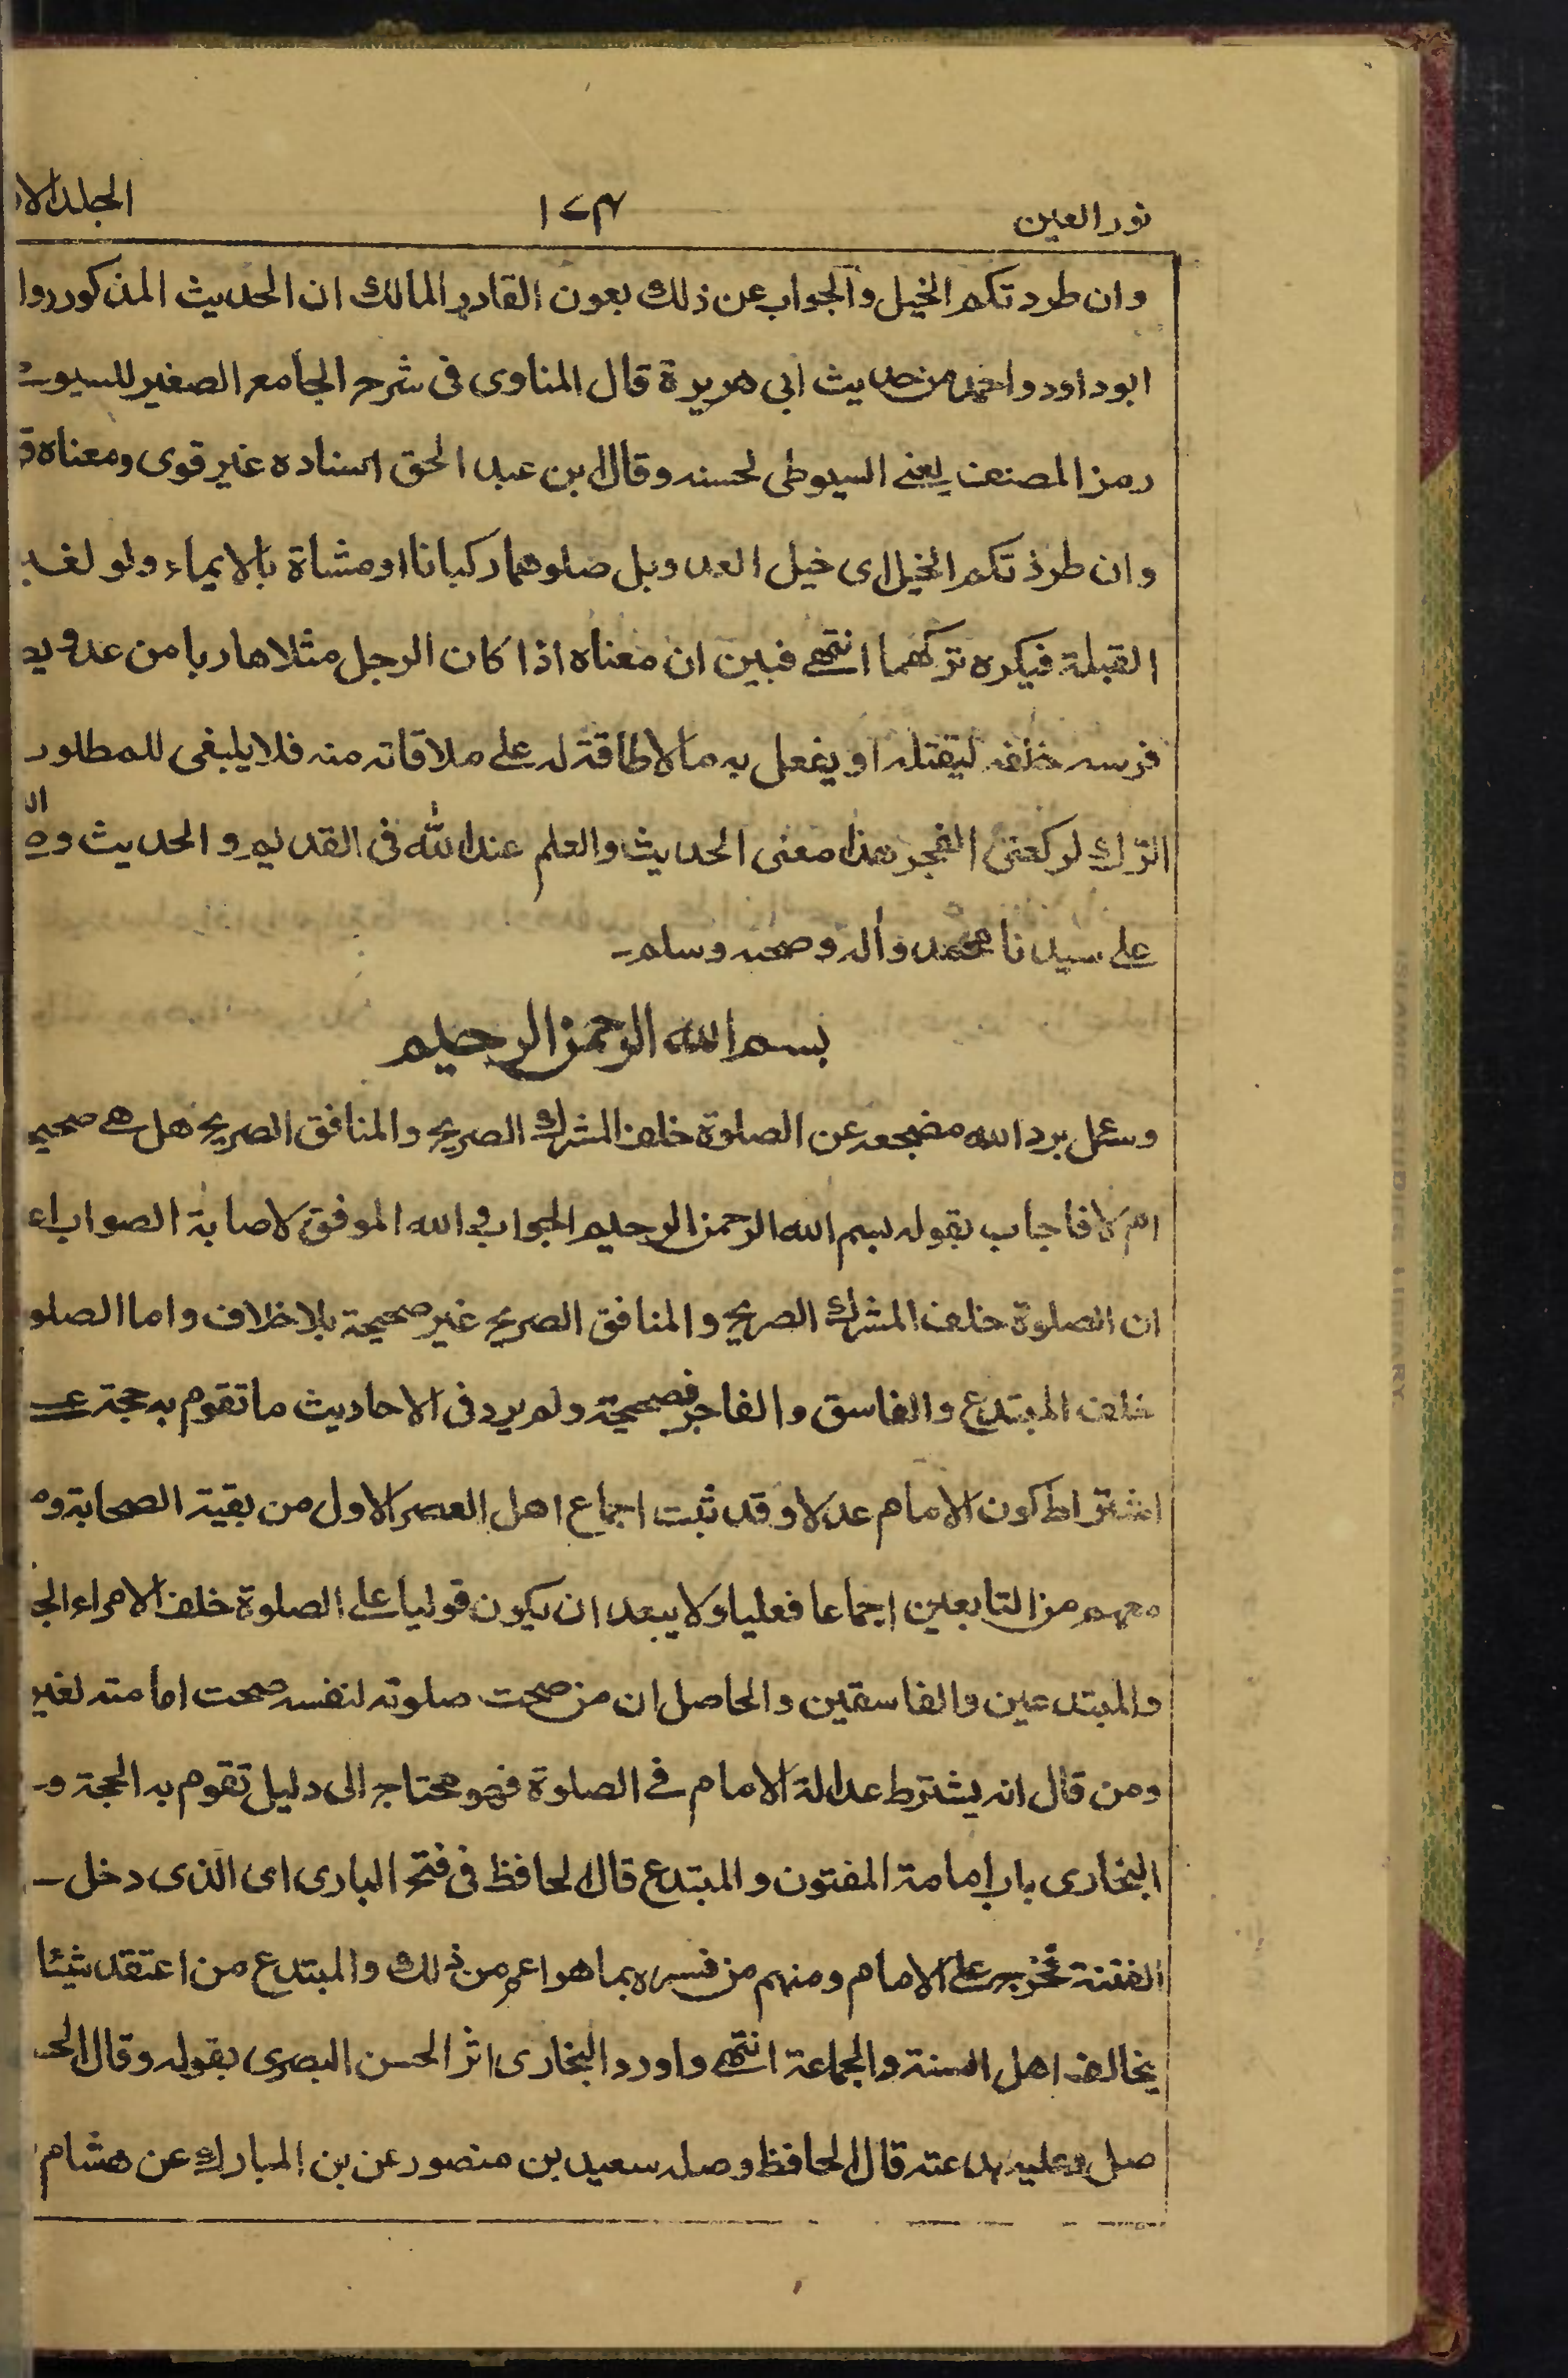 نور العين ١٧٣ الجلد الا
وان طردتكم الخيل والجواب عن ذلك بعون القادر المالك ان الحديث المذكور روا
ابوداود واحمد من حديث ابى هريرة قال المناوى فى شرح الجامع الصغير للسيو
رمز المصنف يعنے السيوطى لحسنه وقال ابن عبد الحق اسناده غير قوى ومعناه
وان طردتكم الخيل اى خيل العدو بل صلوهما ركبانا او مشاة بالايماء ولو لغير
القبلة فيكره تركهما انتهى فبين ان معناه اذا كان الرجل مثلا هاربا من عدو
فرسه خلفه ليقتله او يفعل به ما لا طاقة له على ملاقاته منه فلا ينبغى للمطلو
الترك لركعتى الفجر هذا معنى الحديث والعلم عند الله فى القديم والحديث
على سيدنا محمد وآله وصحبه وسلم۔
بسم الله الرحمن الرحيم
وسئل برد الله مضجعه عن الصلوة خلف المشرك الصريح والمنافق الصريح هل هے صحيح
ام لا فاجاب بقوله بسم الله الرحمن الرحيم الجواب والله الموفق لاصابة الصواب
ان الصلوة خلف المشرك الصريح والمنافق الصريح غير صحيحة بلا خلاف واما الصلو
خلف المبتدع والفاسق والفاجر فصحيحة ولم يرد فى الاحاديث ما تقوم به حجة
اشتراط كون الامام عدلا وقد ثبت اجماع اهل العصر الاول من بقية الصحابة
معهم من التابعين اجماعا فعليا ولا يبعد ان يكون قوليا على الصلوة خلف الامراء
والمبتدعين والفاسقين والحاصل ان من صحت صلوته لنفسه صحت امامته لغير
ومن قال انه يشترط عدالة الامام فے الصلوة فهو محتاج الى دليل تقوم به الحجة
البخارى باب امامة المفتون والمبتدع قال الحافظ فى فتح البارى اى الذى دخل
الفتنة فخرج على الامام ومنهم من فسره بما هو اعم من ذلك والمبتدع من اعتقد شيئا
يخالف اهل السنة والجماعة انتهى واورد البخارى اثر الحسن البصرى بقوله وقال الحسـ
صل وعليه بدعته قال الحافظ وصله سعيد بن منصور عن بن المبارك عن هشام